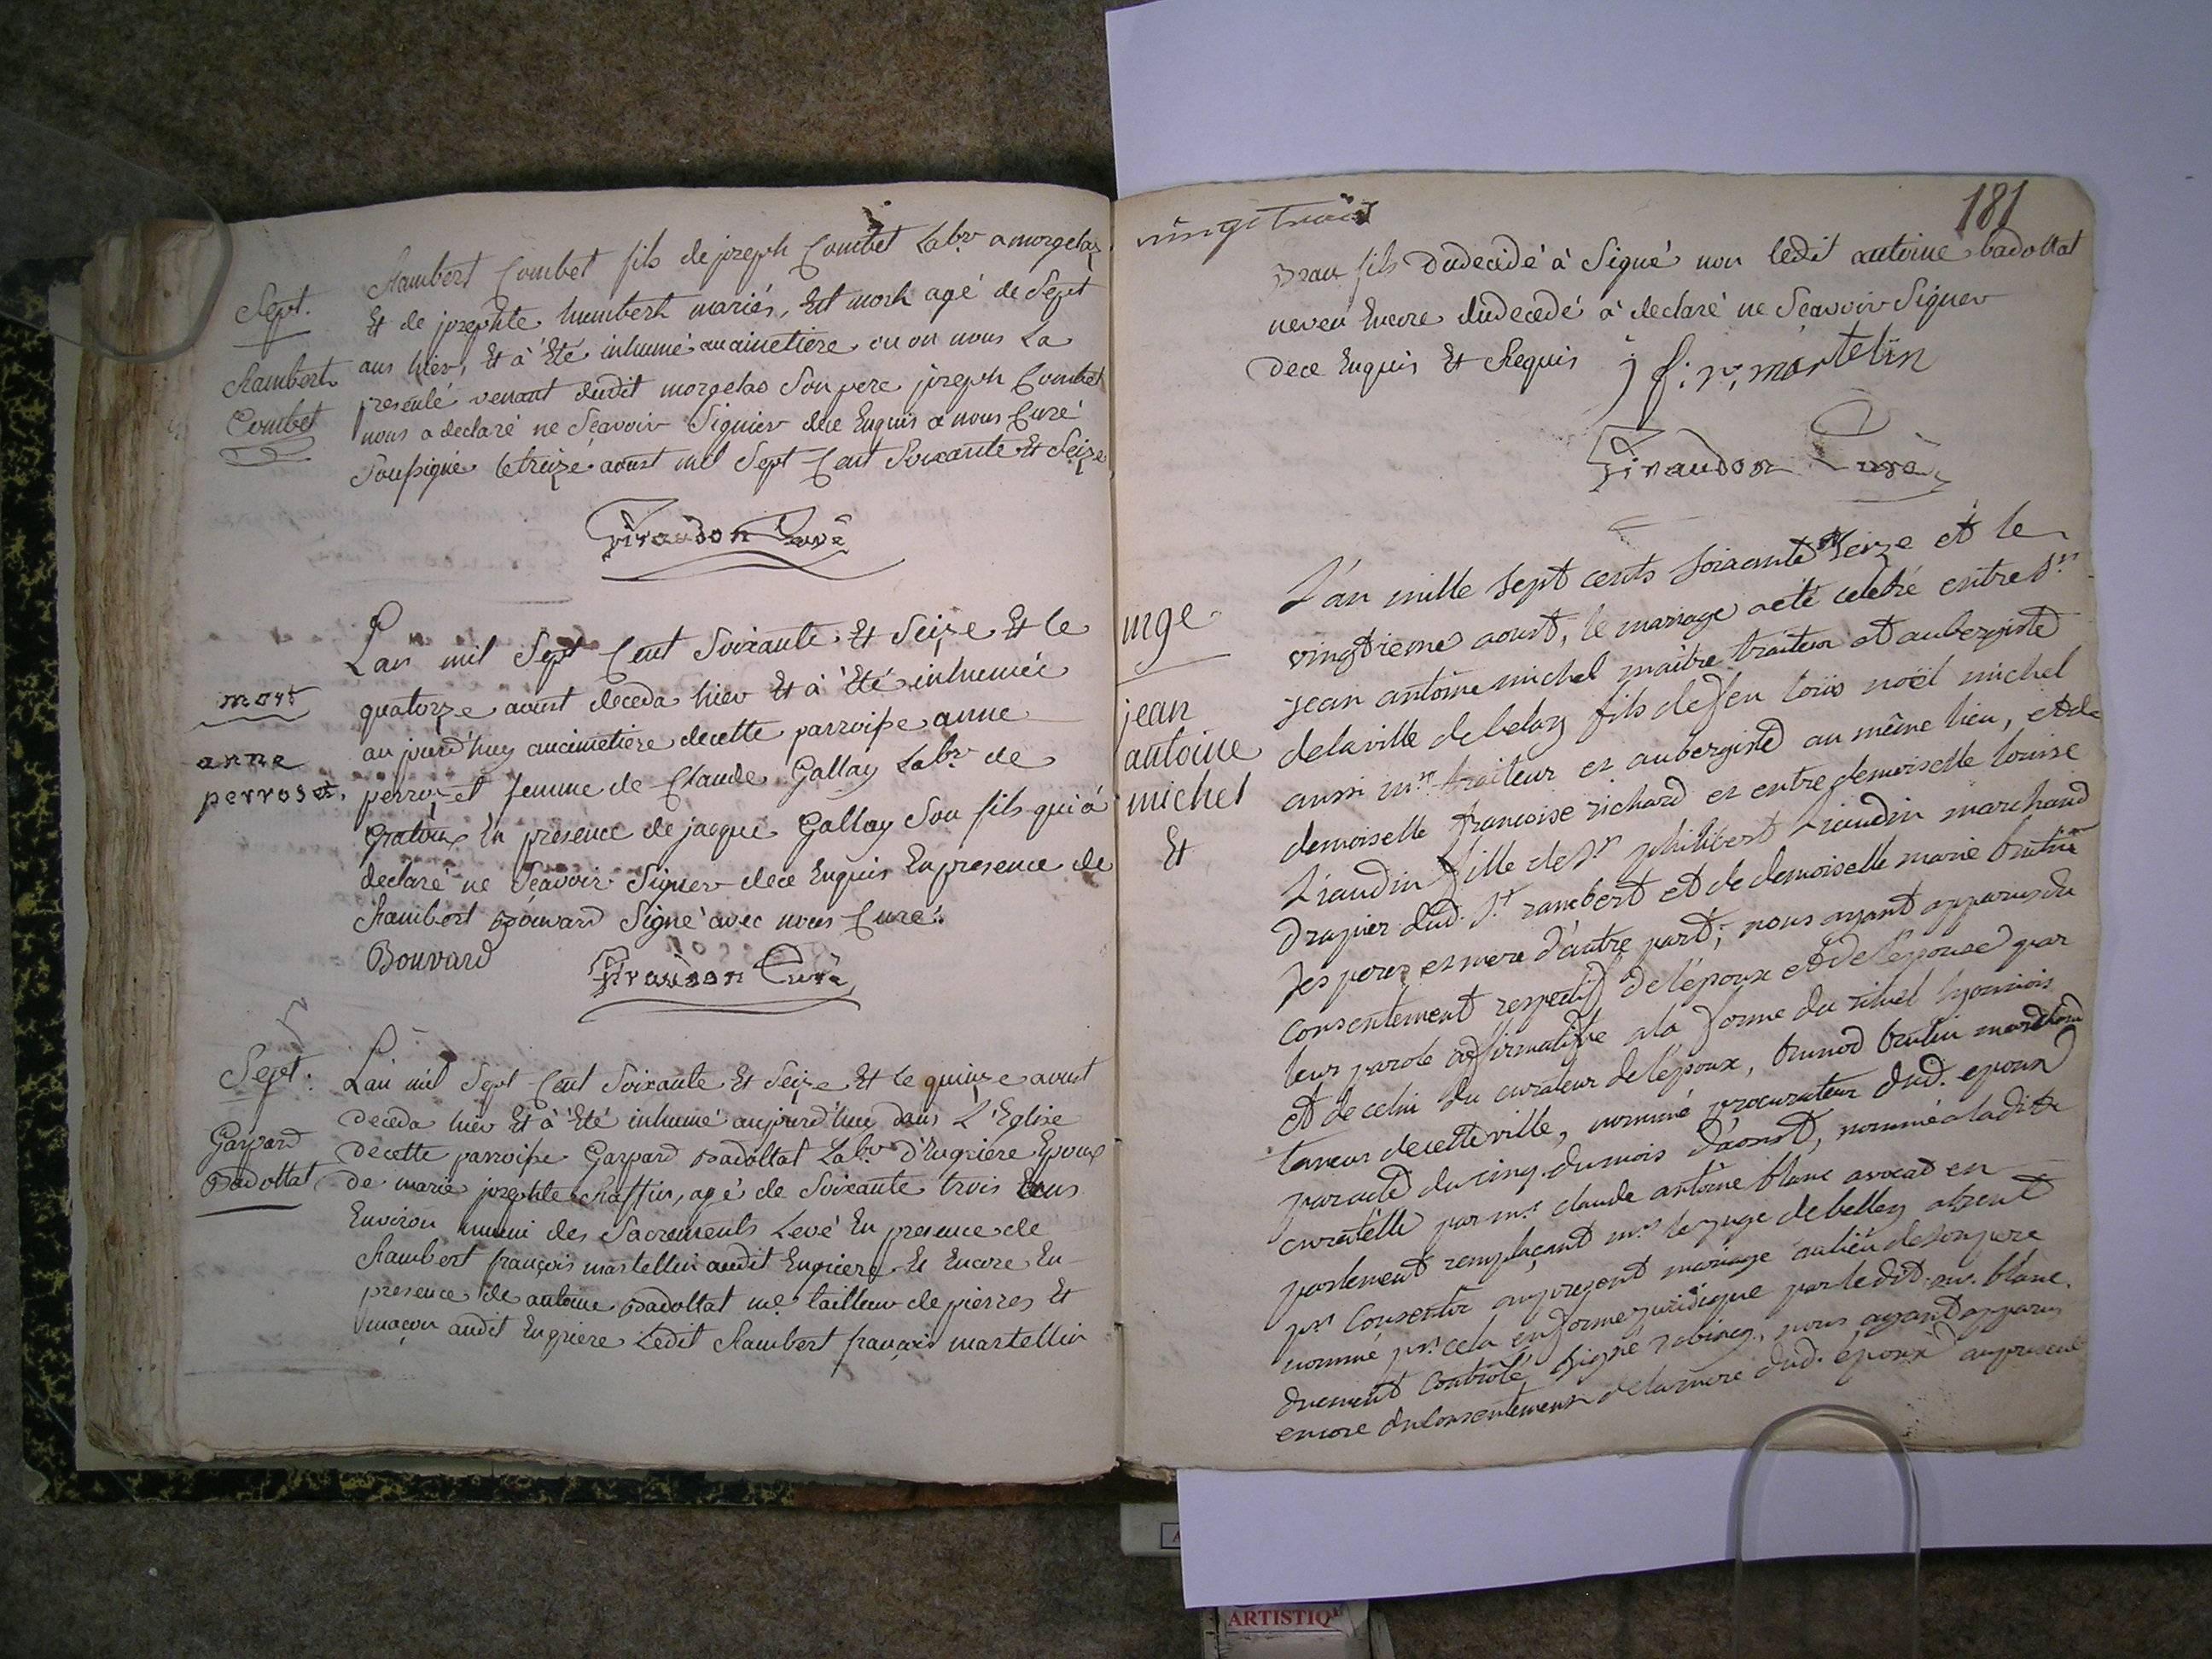 Sept.
Rambert
Combet
Rambert Combet fils de joseph Combet Labr a morgelas
Et de josephte humbert mariés, Est mort agé de Sept
ans hier, Et à Eté inhumé au cimetiere ou on nous La
presenté venant dudit morgelas Son pere joseph Combet
nous a declaré ne Sçavoir Signier dece Enquis a nous Curé
Soussigné le treize aoust mil Sept Cent Soixante Et Seize
Giraudon Curé
mort
anne
perroset.
Lan mil Sept Cent Soixante Et Seize Et le
quatorze aoust deceda hier Et à Eté inhumée
aujourd'huy aucimetiere decette parroisse anne
perrozet femme de Claude Gallay Labr de
Gratoux En presence de jacque Gallay Son fils qui à
declaré ne Sçavoir Signer dece Enquis En presence de
Rambert Bouvard Signé avec nous Curé.
Bouvard Giraudon Curé
Sept.
Gaspard
Badottat
Lan mil Sept Cent Soixante Et Seize Et le quinze aoust
deceda hier Et à Eté inhumé aujourd'huy dans L'Eglise
decette parroisse Gaspard Badottat Labr d'Engriere Epoux
de marie josephte Chaffin, agé de Soixante trois ans
Environ muni des Sacrements Levé En presence de
Rambert françois martellin audit Engriere Et Encore En
presence de antoine Badottat me tailleur de pierres Et
maçon audit Engriere Ledit Rambert françois martellin
vingt trois
181
Beau fils dudecidé à Signé non ledit antoine badottat
neveu Encore dudecedé à declaré ne Sçavoir Signer
dece Enquis Et Requis j f: r, martelin
Giraudon Curé
mge
jean
antoine
michel
Et
L'an mille sept cents soixante seize et le
vingtieme aoust, le mariage a eté celebré entre sr
jean antoine michel maitre traiteur et aubergiste
delaville de belay fils defeu loüis noël michel
aussi mr traiteur et aubergiste au même lieu, et de
demoiselle francoise richard et entre demoiselle louise
Liaudin fille de sr philibert Liaudin marchand
drapier dud. st rambert et de demoiselle marie brutin
ses pere et mere d'autre part; nous ayant apparus du
consentement respectif de l'époux et de l'epouse par
leur parole affirmatife a la forme du rituel lyonnois
et de celui du curateur de l'époux, brutin marchand
taneur decette ville, nommé procurateur dud. epoux
par acte du cinq du mois d'aoust, nommé a ladite
curatelle par mr claude antoine blanc avocat en
parlement remplaçant mr le juge de belley absent
pr consentir au present mariage au lieu de son pere
nommé pr cela en forme juridique par le dit mr blanc.
duement controlé signé, nous ayant apparus
encore du consentement de la mere dud. époux au present